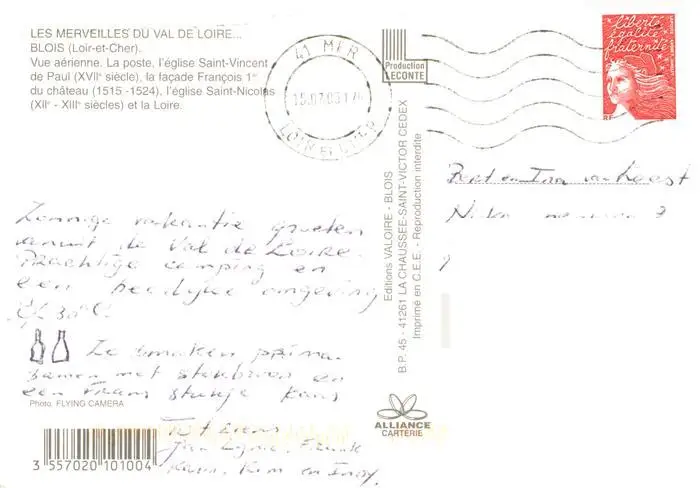 LES MERVEILLES DU VAL DE LOIRE...
BLOIS (Loir-et-Cher).
Vue aérienne. La poste, l'église Saint-Vincent
de Paul (XVIIe siècle), la façade François 1er
du château (1515 -1524), l'église Saint-Nicolas
(XIIe - XIIIe siècles) et la Loire.
41 MER
15.07.03 17H
LOIR ET CHER
Production
LECONTE
liberté
égalité
fraternité
RF
Bert en Ina van Keest
Zonnige vakantie groeten
vanuit de Val de Loire.
Prachtige camping en
een heerlijke omgeving
30°C.
Ze smaken prima
samen met stokbrood en
een Frans stukje kaas
Photo. FLYING CAMERA
Groetjes
Kim en
3 557020 101004
Editions VALOIRE - BLOIS
B.P. 45 - 41261 LA CHAUSSEE-SAINT-VICTOR CEDEX
Imprimé en C.E.E. - Reproduction interdite
ALLIANCE
CARTERIE